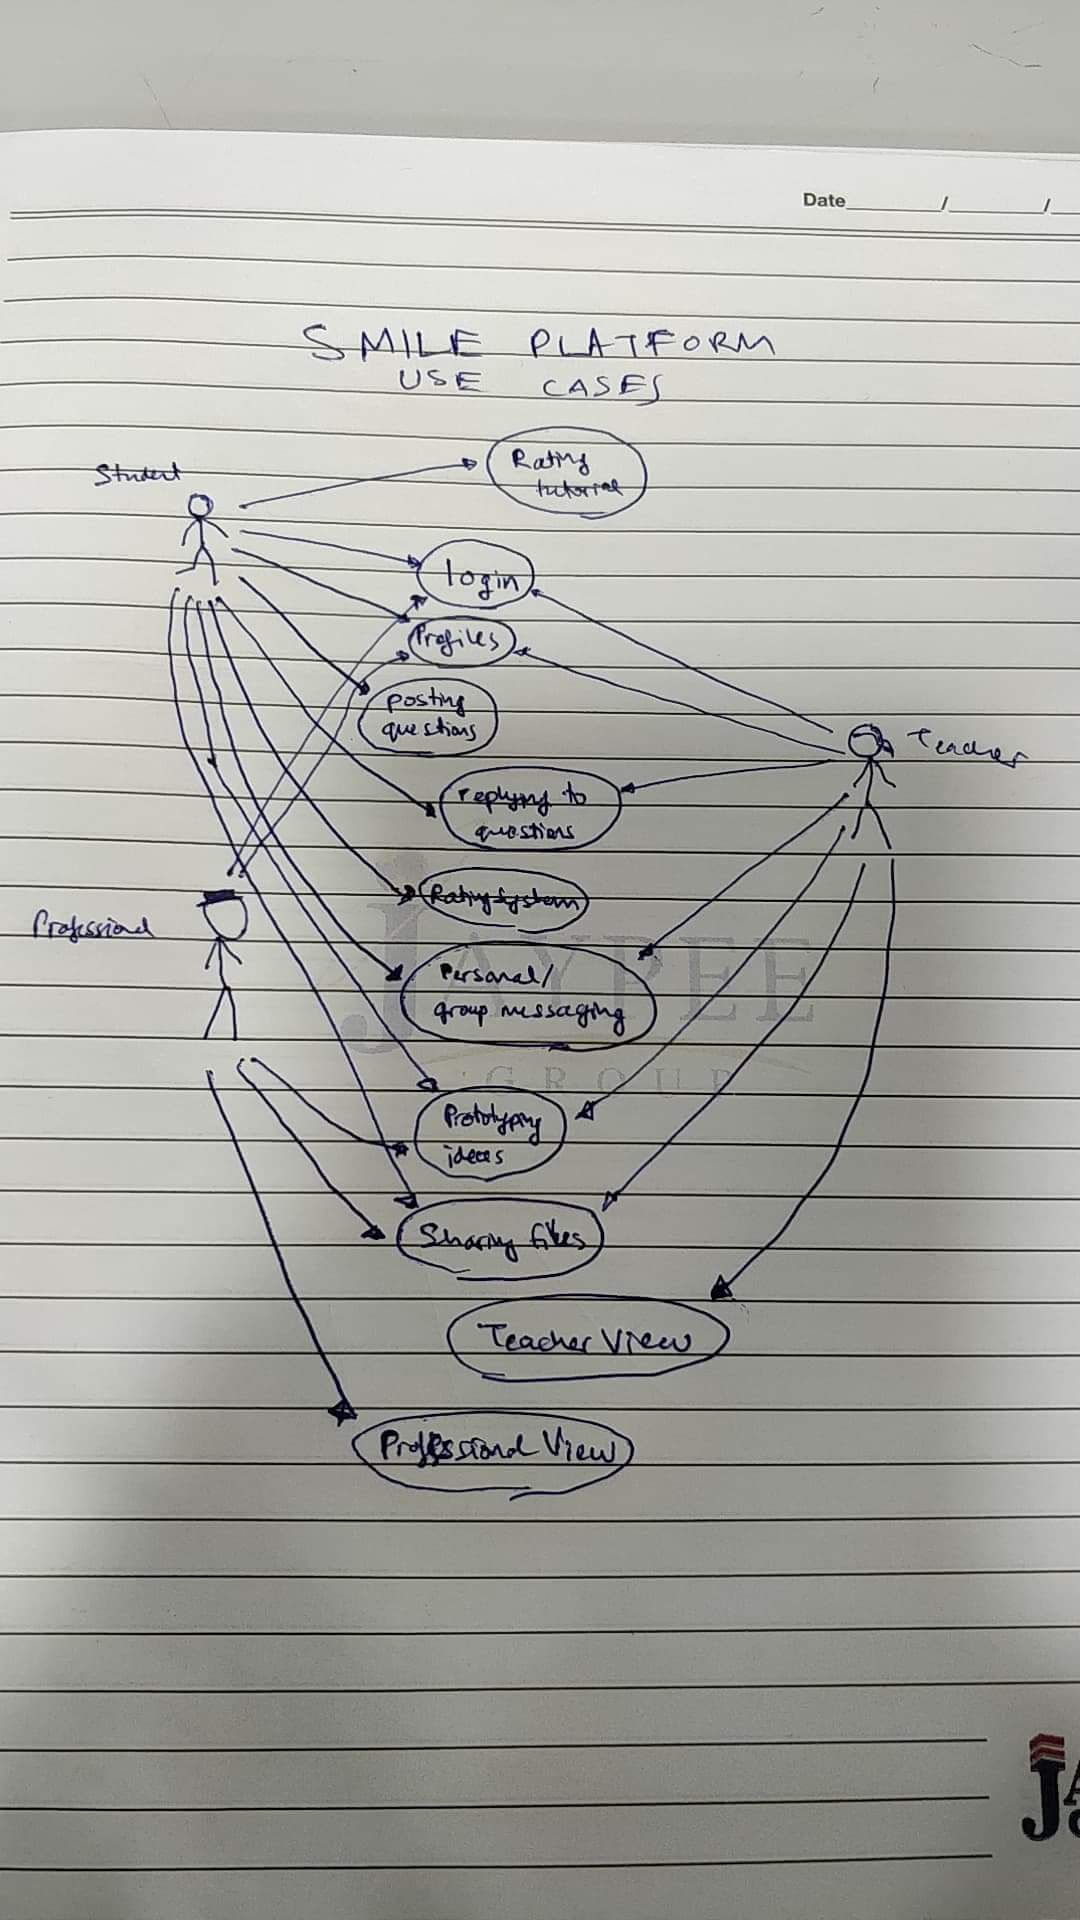 Date / /
SMILE PLATFORM
USE CASES
Student
Rating
tutorial
login
Profiles
posting
questions
Teacher
replying to
questions
Rating system
Professional
Personal/
group messaging
JAYPEE
GROUP
Prototyping
ideas
Sharing files
Teacher View
Professional View